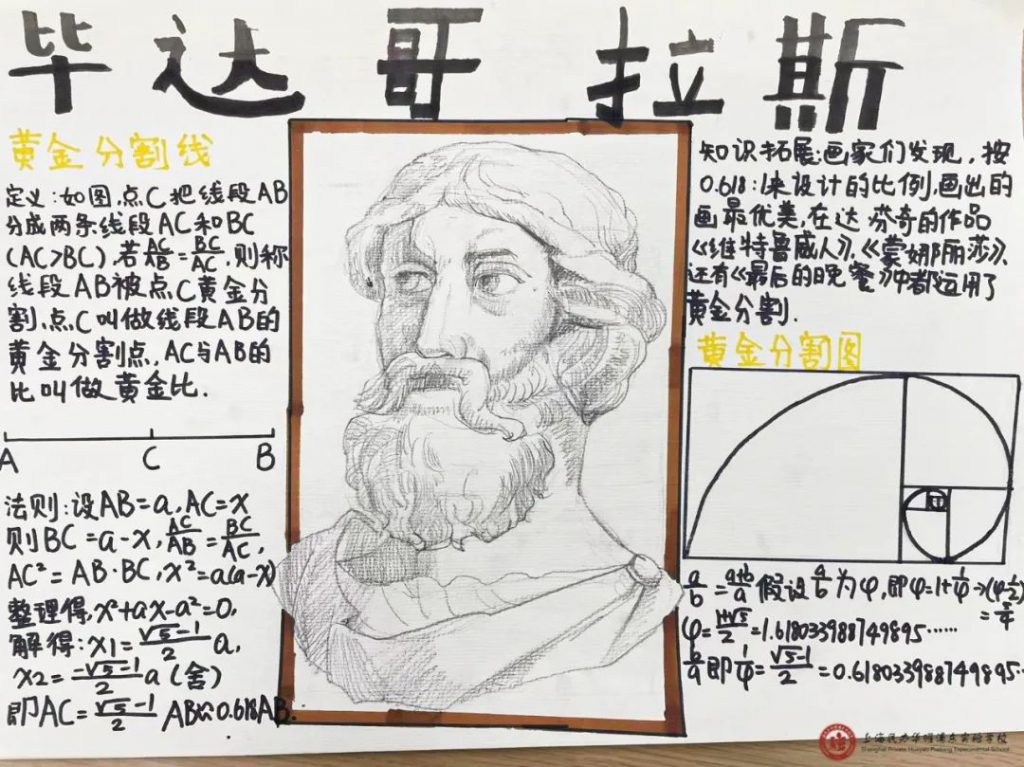 毕达哥拉斯
黄金分割线
定义:如图,点C把线段AB
分成两条线段AC和BC
(AC>BC),若AC/AB=BC/AC,则称
线段AB被点C黄金分
割,点C叫做线段AB的
黄金分割点,AC与AB的
比叫做黄金比.
A C B
法则:设AB=a,AC=x
则BC=a-x,AC/AB=BC/AC,
AC²=AB·BC,x²=a(a-x)
整理得,x²+ax-a²=0,
解得:x1=(√5-1)/2 a,
x2=(-√5-1)/2 a(舍)
即AC=(√5-1)/2 AB≈0.618AB.
知识拓展:画家们发现,按
0.618:1来设计的比例,画出的
画最优美,在达芬奇的作品
《维特鲁威人》,《蒙娜丽莎》,
还有《最后的晚餐》中都运用了
黄金分割.
黄金分割图
a/b=(a+b)/a 假设a/b为φ,即φ=1+1/φ
φ=(1+√5)/2=1.618033988749895……
b/a即1/φ=(√5-1)/2=0.618033988749895…
上海民办华曜浦东实验学校
Shanghai Private Huayao Pudong Experimental School